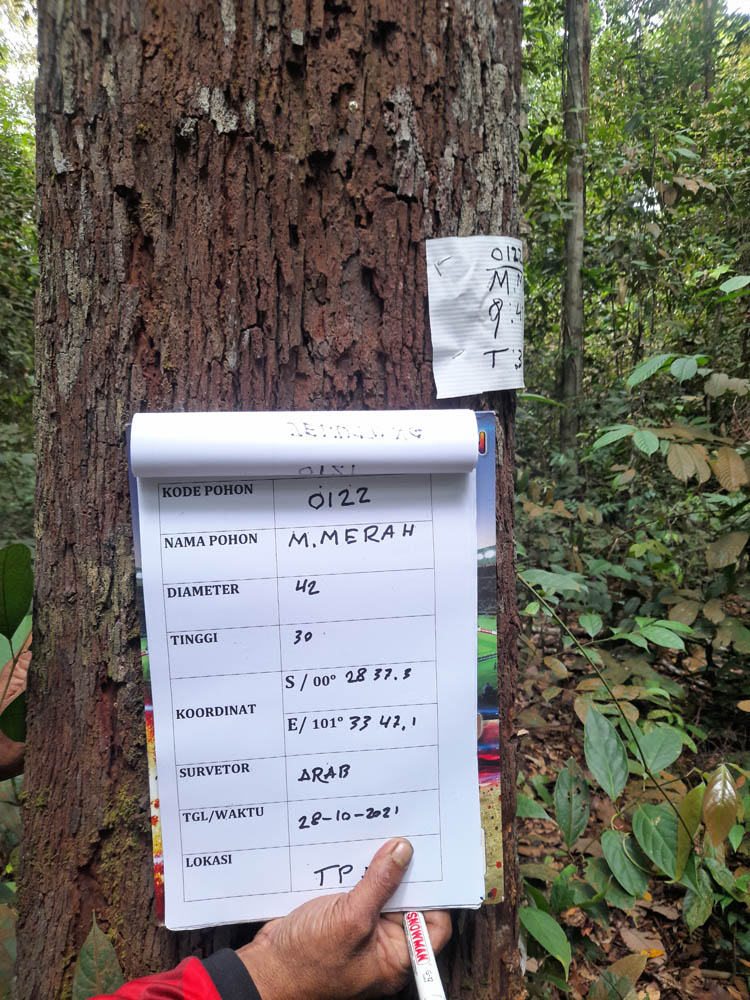 0122
M
T : 3
KODE POHON 0122
NAMA POHON M.MERAH
DIAMETER 42
TINGGI 30
KOORDINAT
S / 00° 28 37.3
E/ 101° 33 42,1
SURVETOR ARAB
TGL/WAKTU 28-10-2021
LOKASI TP
SNOWMAN